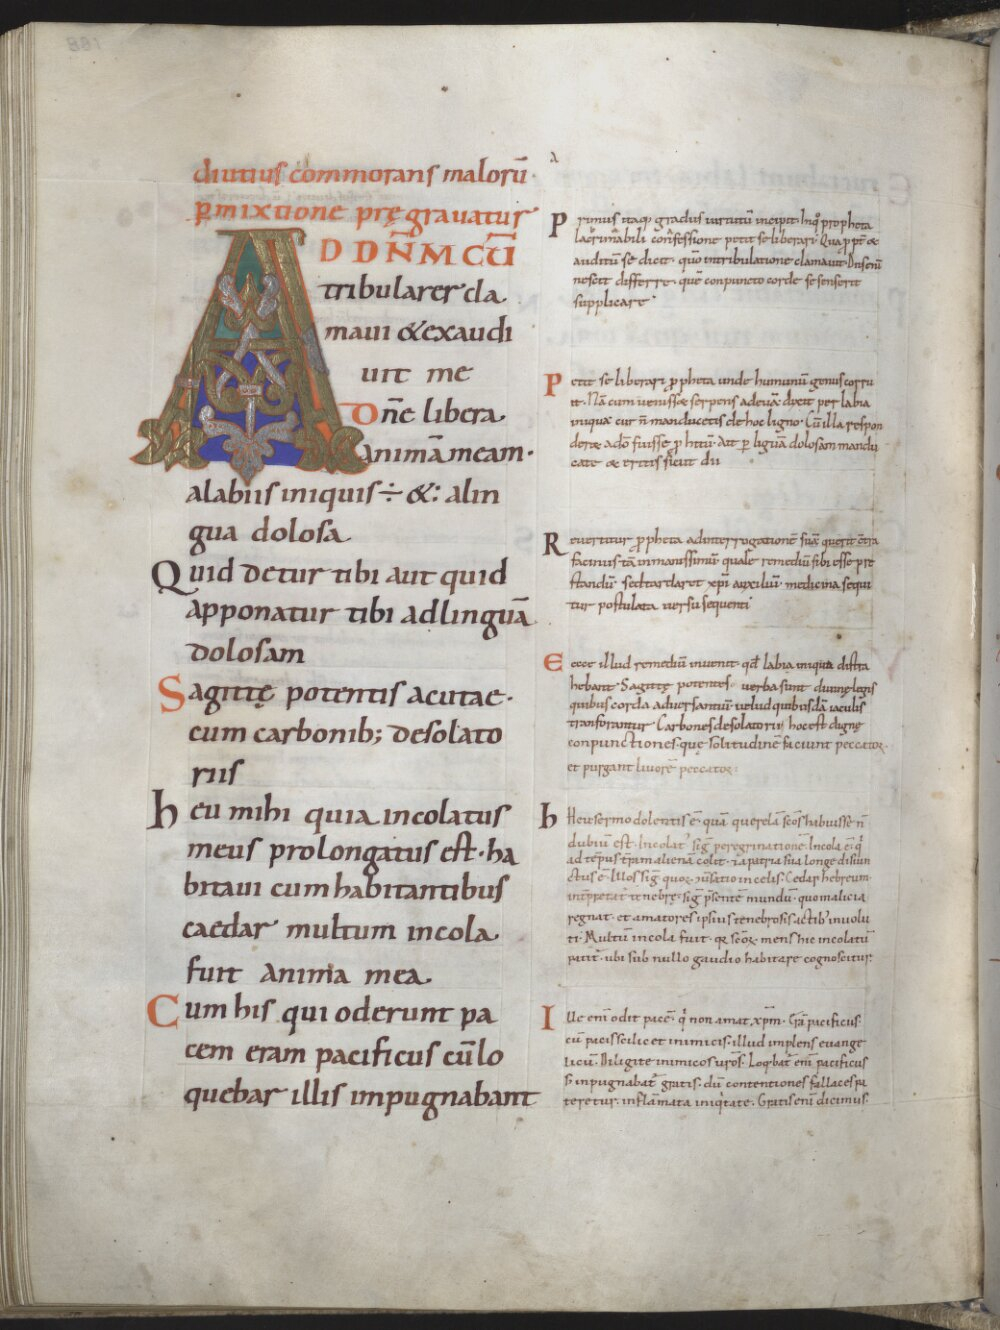 diutius commorans malorū·
Pmixtione pręgrauatur
AD DN̄M CŪ
tribularer cla
maui &exaudi
uit me
Dn̄e libera
animā meam·
alabiis iniquis÷ &: alin
gua dolosa
Quid detur tibi aut quid
apponatur tibi adlinguā
dolosam
Sagittę potentis acutae·
cum carbonib; desolato
riis
heu mihi quia incolatus
meus prolongatus est·ha
bitaui cumhabitantibus
caedar multum incola
fuit anima mea
Cum his qui oderunt pa
cem eram pacificus cūlo
quebar illis impugnabant
Primus itaq; gradus uirtutū incipit· Inquo propheta
lacrimabili confessione petit se liberari· &
auditū se dicit· quo intribulatione clamauit·
nescit differre· quē conpuncto corde se senserit
supplicare
Petit se liberari ppheta unde humanū genus corru
it· Nā cum uenisset serpens adeuā dixit per labia
iniqua cur n̄ manducetis de hoc ligno· Cū illa respon
de adō fuisse p hibitū· Ait p liguā dolosam mandu
cate & eritis sicut dii
Reuertitur ppheta adinterrogationē suā querit contra
facinus tā inmanissimū quale remediū sibi esse pre
standū· sed tardaret xpi auxiliū· medicina sequi
tur postulata uersu sequenti
Ecce illud remediū inuenit· qd labia iniqua
hebant· Sagittę potentes· uerba sunt diuinę legis
quibus corda aduersantiū uelud quibusdā iaculis
tranforantur Carbones desolatorii· hoc est dignę
conpunctiones· quę solitudinē faciunt peccator·
et purgant liuorē peccator·
hHeu sermo dolentis ē· quā querelā scōs habuisse n̄
dubiū est· Incolat' sig peregrinationē· Incola ē· q
ad tēpus trām alienā colit· patria sua longe disiun
ctus ē· Illos sig quor conuersatio incelis· Cedar hebreum
inpretat tenebre· sig psentē mundū· quo malicia
regnat· et amatores ipsius tenebrosis actib' inuolu
ti· Multū incola fuit· q scōr mens hic incolatū
patit· ubi sub nullo gaudio habitare cognoscitur·
Ille enī odit pacē· q non amat xpm· Erā pacificus·
cū pacis scilicet inimicis· illud implens euange
licū· Diligite inimicos uros· Loqbat enī pacificus
& inpugnabat gratis· dū contentiones fallaces pa
teretur· inflāmata iniqitate· Gratis enī dicimus·